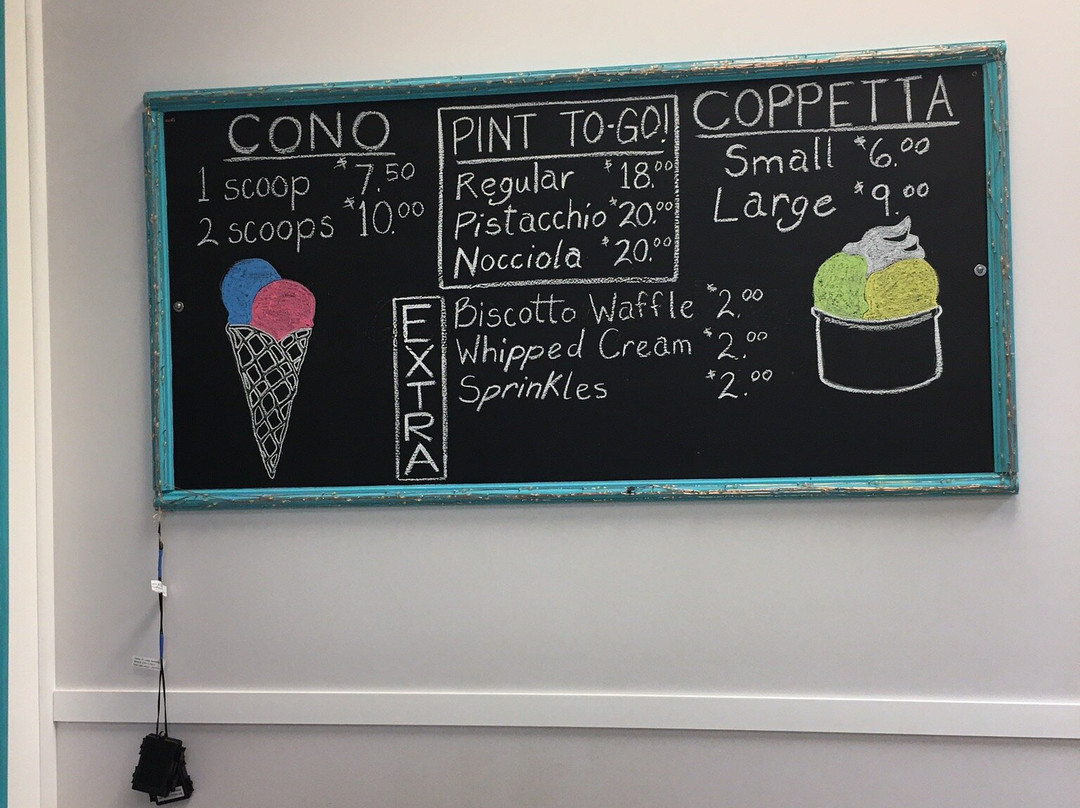 CONO
1 scoop $7.50
2 scoops $10.00
PINT TO-GO!
Regular $18.00
Pistacchio $20.00
Nocciola $20.00
COPPETTA
Small $6.00
Large $9.00
EXTRA
Biscotto Waffle $2.00
Whipped Cream $2.00
Sprinkles $2.00